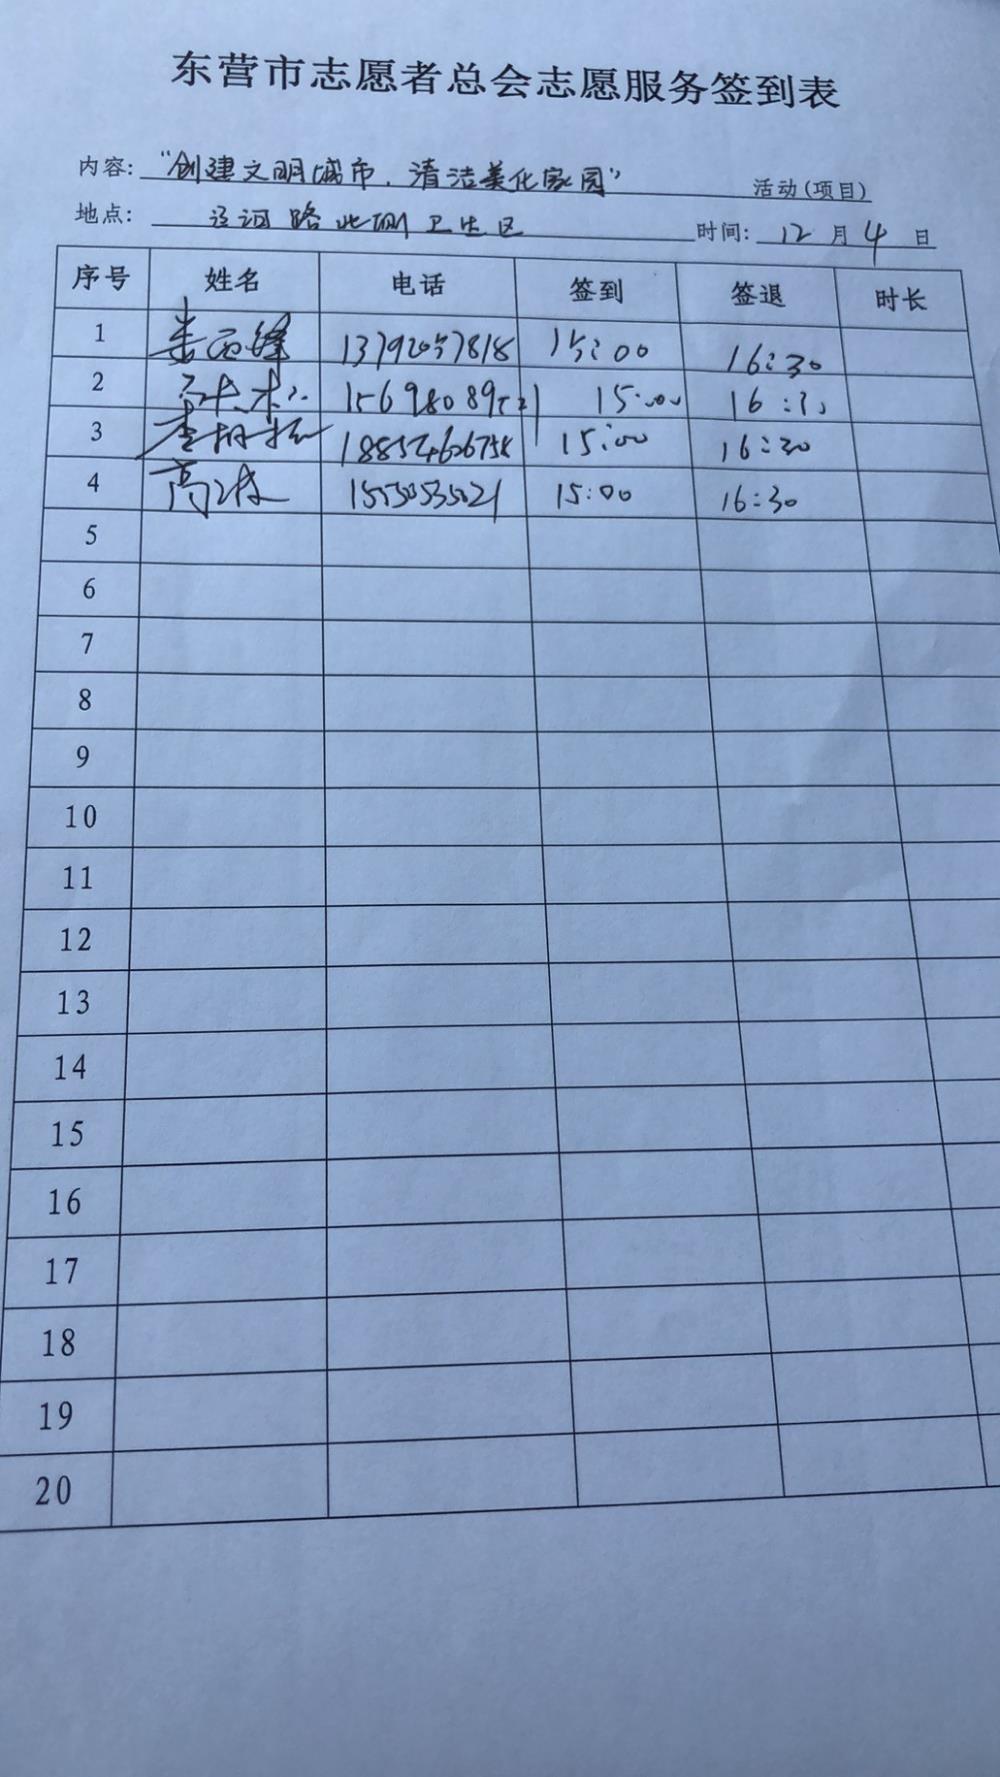 东营市志愿者总会志愿服务签到表
内容: “创建文明城市,清洁美化家园” 活动(项目)
地点: 辽河路北侧卫生区 时间: 12 月 4 日
序号 姓名 电话 签到 签退 时长
1 13792057818 15:00 16:30
2 15:00 16:30
3 李 18854626758 15:00 16:30
4 高波 15550535021 15:00 16:30
5
6
7
8
9
10
11
12
13
14
15
16
17
18
19
20